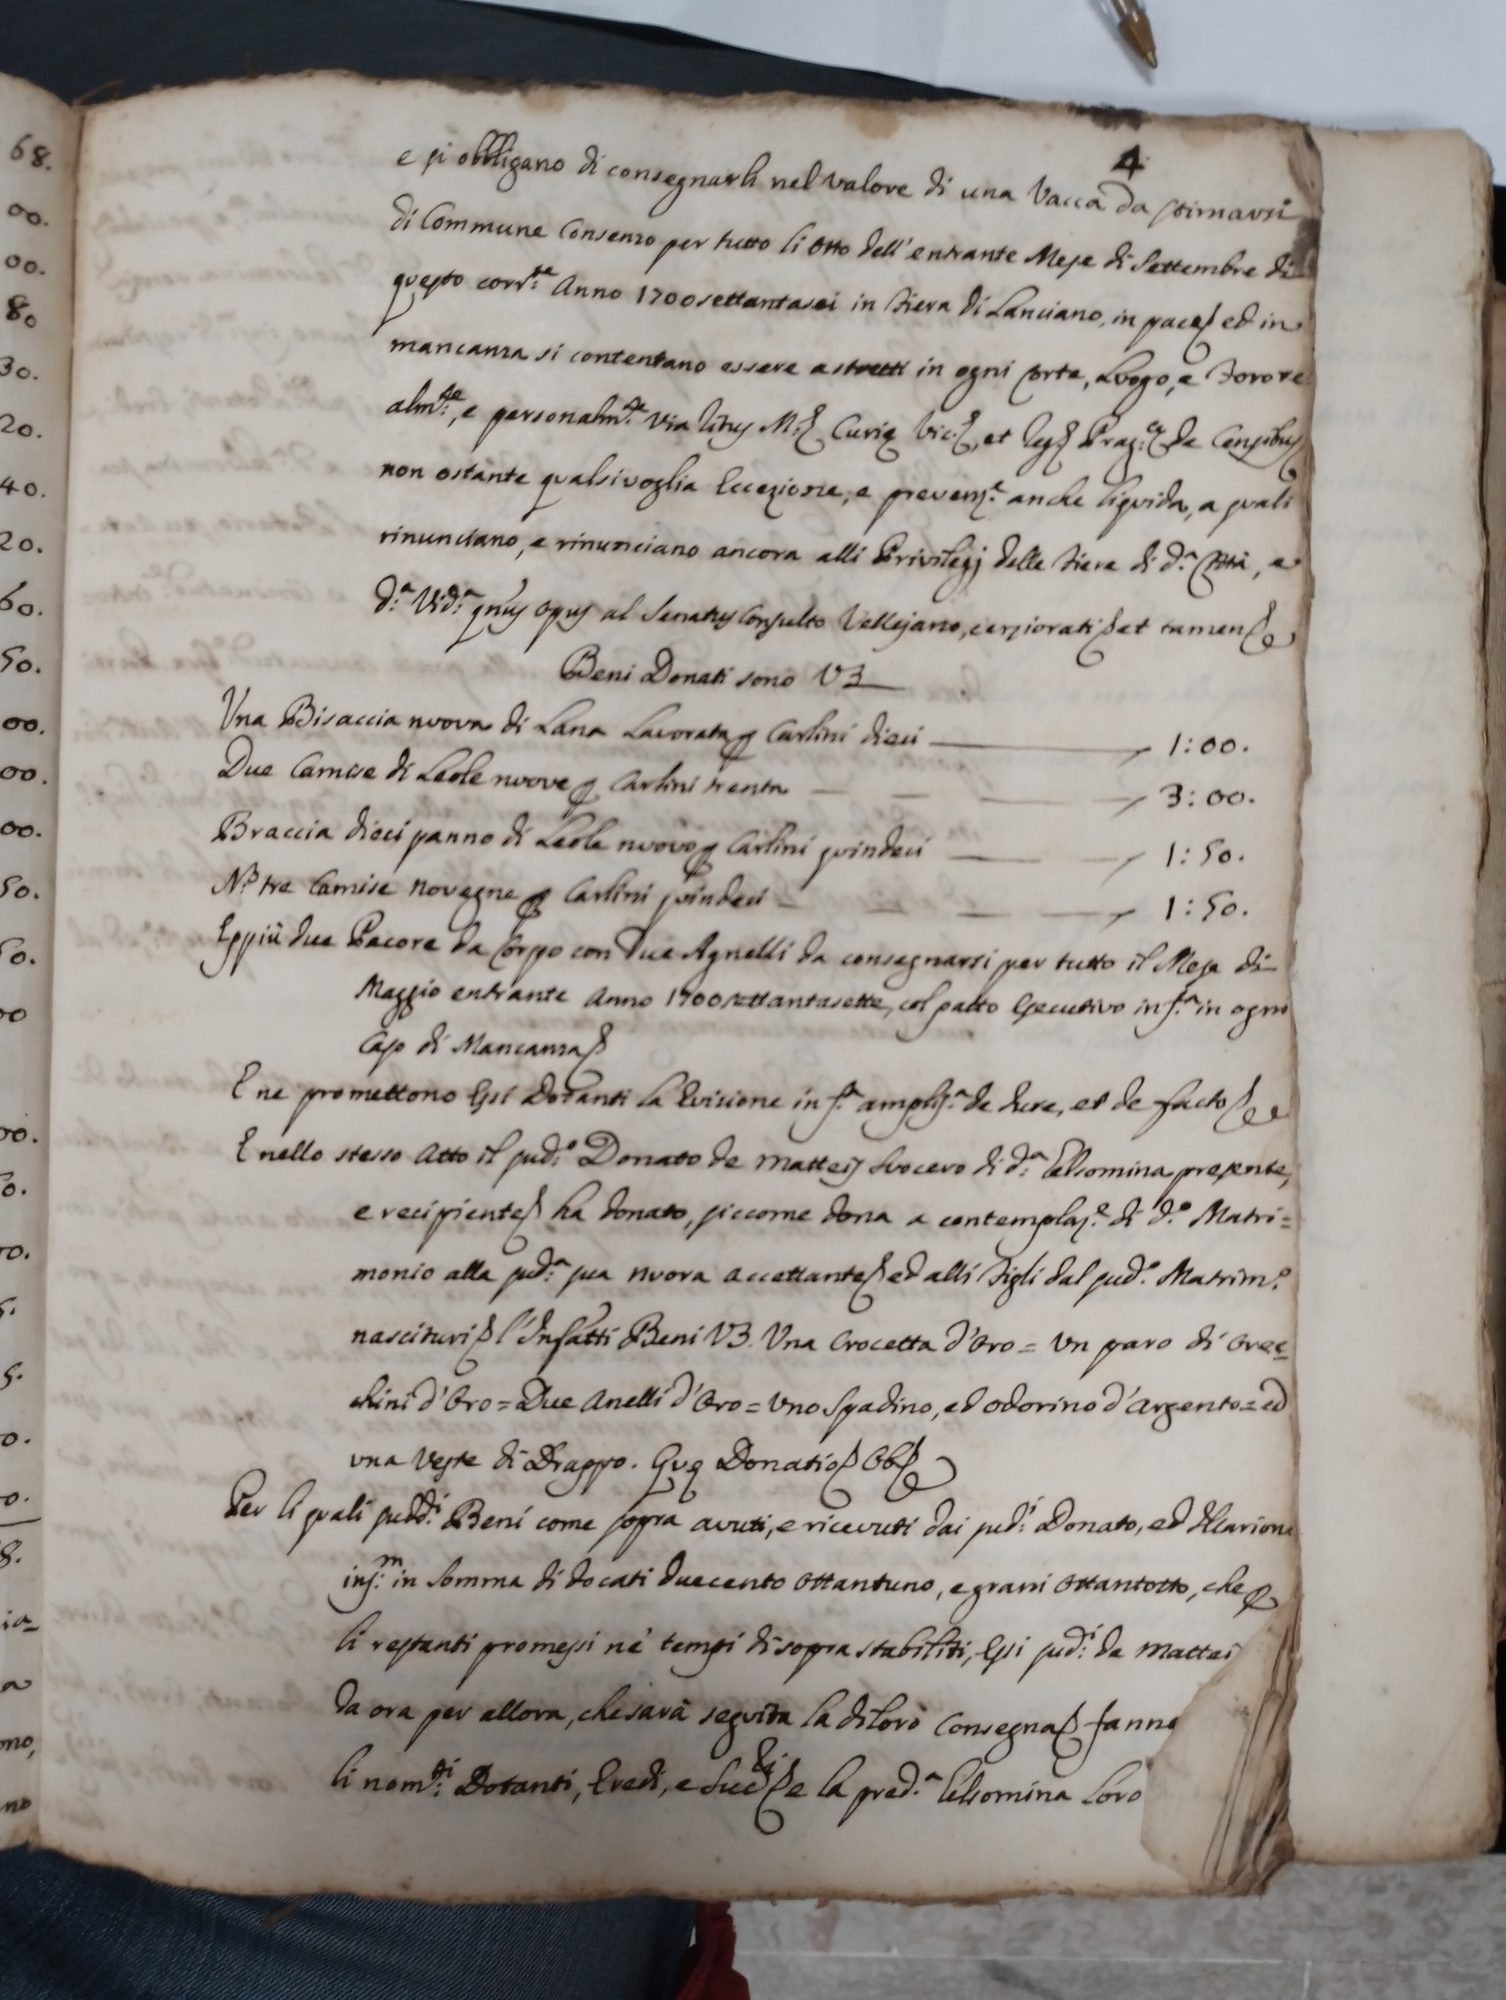 68.
00.
00.
80
30.
20.
40.
20.
60.
50.
00.
00.
00.
50.
50.
00
00.
4
e si obbligano di consegnarli nel valore di una Vacca da stimarsi
di Commune Consenso per tutto li otto dell'entrante Mese di Settembre di
questo corr.te Anno 1700settantasei in Fiera di Lanciano, in pace, ed in
mancanza si contentano essere astretti in ogni Corte, Luogo, e Foro re
alm.te, e personalm.te via ritus M. Curiæ Vic., et reg. Prag.cæ de Censibus
non ostante qualsivoglia Eccezione, e prevenz.e anche liquida, a quali
rinunciano, e rinunciano ancora alli Privilegj delle Fiere di d.a Città, e
d.a Vid.a q'nus opus al Senatus Consulto Vellejano, cerziorati et tamen
Beni Donati sono V3
Una Bisaccia nuova di Lana Lavorata p Carlini dieci 1:00.
Due Camise di Leole nuove p Carlini trenta 3:00.
Braccia dieci panno di Leole nuovo p Carlini quindeci 1:50.
N.o tre Camise novegne p Carlini quindeci 1:50.
Eppiù due Pecore da Corpo con due Agnelli da consegnarsi per tutto il Mese di
Maggio entrante Anno 1700settantasette, col patto esecutivo in f.a in ogni
Caso di Mancanza
E ne promettono essi Dotanti la Evizione in f.a ampliss.a de Jure, et de facto
E nello stesso Atto il sud.o Donato de Matteis Suocero di d.a Gelsomina presente,
e recipiente ha donato, siccome dona a contemplaz.e di d.o Matri=
monio alla sud.a sua nuora accettante ed alli Figli dal sud.o Matrim.o
nascituri l'Infatti Beni V3. Una Crocetta d'Oro = Un paro di Orec=
chini d'Oro = Due Anelli d'Oro = Uno Spadino, ed odorino d'Argento = ed
una Veste di Drappo. Quæ Donatio Ob
Per li quali sudd.i Beni come sopra avuti, e ricevuti dai sud.i Donato, ed Ilarione
ins.m in Somma di docati duecento ottantuno, e grani ottantotto, che p
li restanti promessi ne' tempi di sopra stabiliti, essi sud.i de Mattei
da ora per allora, che sarà seguita la di loro Consegna fanno
li nom.ti Dotanti, Eredi, e Succ.ri e la pred.a Gelsomina loro